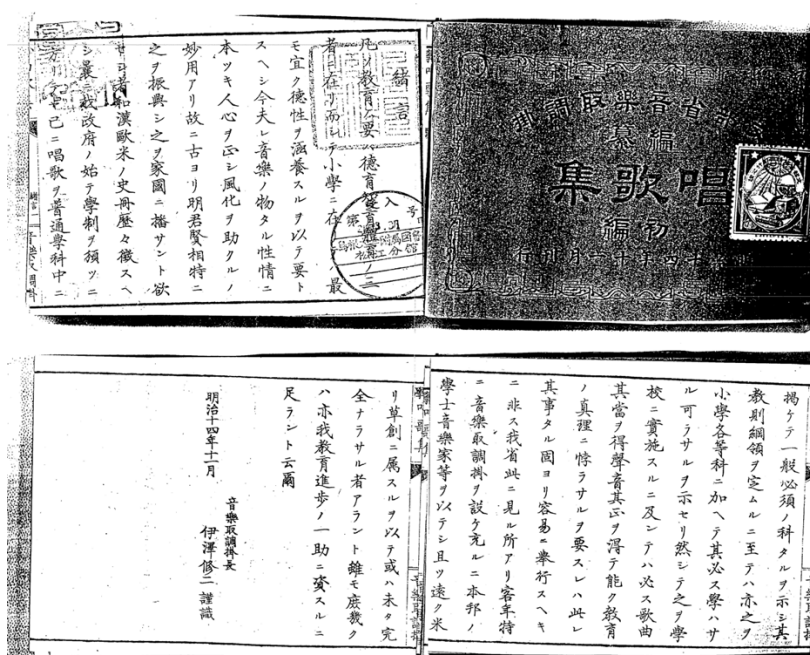 省音樂取調掛
編纂
唱歌集
初編
十四年十一月刊行
緒言
凡ソ教育ノ要ハ德育智育體育ノ二
者ニ在リ而シテ小學ニ在 最
モ宜ク德性ヲ涵養スルヲ以テ要ト
スヘシ今夫レ音樂ノ物タル性情ニ
本ツキ人心ヲ正シ風化ヲ助クルノ
妙用アリ故ニ古ヨリ明君賢相特ニ
之ヲ振興シ之ヲ家國ニ播サント欲
セシ者和漢歐米ノ史冊歷々徵スヘ
シ曩ニ我政府ノ始テ學制ヲ頒ツニ
方リテヤ已ニ唱歌ヲ普通學科中ニ
揭ケテ一般必須ノ科タルヲ示シ其
教則綱領ヲ定ムルニ至テハ亦之ヲ
小學各等科ニ加ヘテ其必ス學ハサ
ル可ラサルヲ示セリ然シテ之ヲ學
校ニ實施スルニ及ンテハ必ス歌曲
其當ヲ得聲音其正ヲ得テ能ク教育
ノ真理ニ悖ラサルヲ要スレハ此レ
其事タル固ヨリ容易ニ擧行スヘキ
ニ非ス我省此ニ見ル所アリ客年特
ニ音樂取調掛ヲ設ケ充ルニ本邦ノ
學士音樂家等ヲ以テシ且ツ遠ク米
リ草創ニ属スルヲ以テ或ハ未タ完
全ナラサル者アラント雖モ庶幾ク
ハ亦我教育進歩ノ一助ニ資スルニ
足ラント云爾
明治十四年十一月
音樂取調掛長
伊澤修二謹識